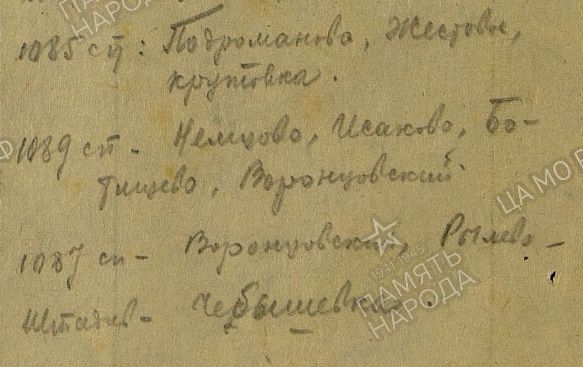 1085 сп: Подроманова, Жестовье,
крутовка.
1089 сп - Немцово, Исаково, Бо-
тищево, Воронцовский
1087 сп - Воронцовский, Рылево -
Штадив - Чебышевка.
ПАМЯТЬ
НАРОДА
ЦА МО
1941-1945
ПАМЯТЬ
НАРОДА